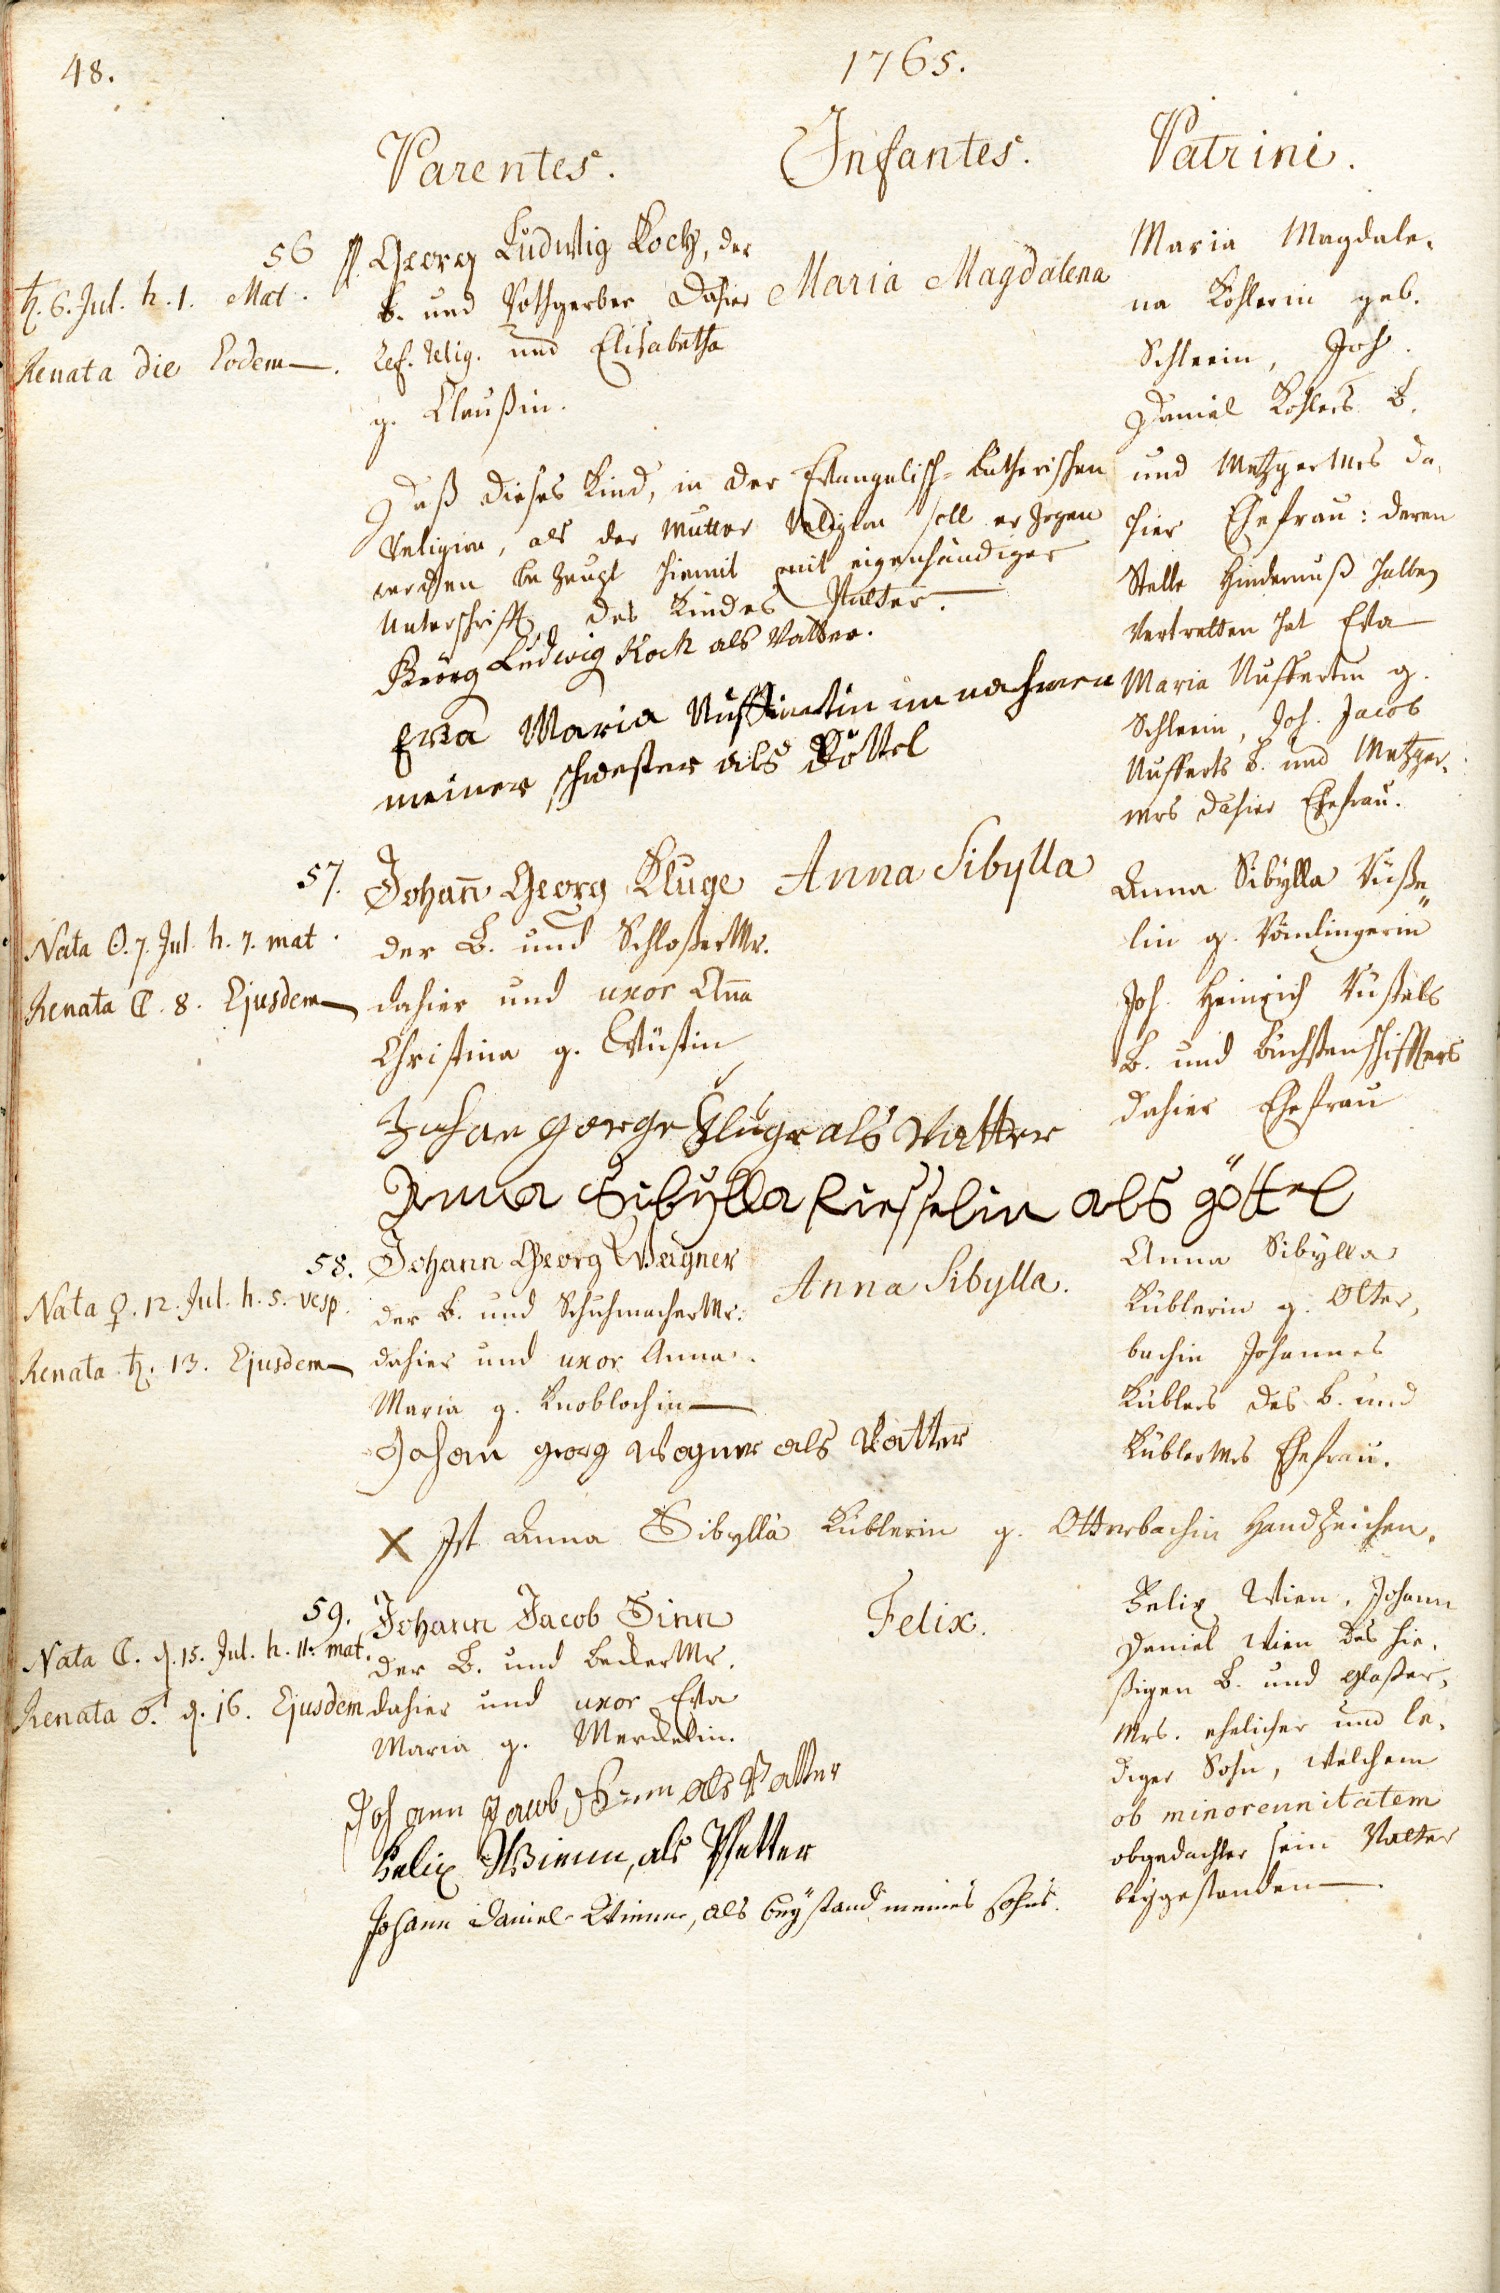 48.
1765.
Parentes.
Infantes.
Patrini.
56
♄. 6. Jul. h. 1. Mat.
Renata die Eodem
Georg Ludwig Koch, der
B. und Rothgerber dahier
ref. relig. und Elisabetha
g. Claußin.
Maria Magdalena
Maria Magdale-
na Kohlerin geb.
Schleein, Joh.
Daniel Kohlers B.
und Metzgermrs da-
hier Ehefrau: deren
Stelle Hindernuß halben
vertretten hat Eva
Maria Nuffertin g.
Schleein, Joh. Jacob
Nufferts B. und Metzger-
mrs dahier Ehefrau.
Daß dieses Kind, in der Evangelisch-Lutherischen
Religion, als der Mutter Religion soll erzogen
werden bezeugt hiemit mit eigenhändiger
Unterschrifft des Kindes Vatter.
Georg Ludwig Koch als Vatter.
Eva Maria Nuffertin im nahmen
meiner schwester als Göttel
57.
Nata ☉. 7. Jul. h. 7. mat.
Renata ☾. 8. Ejusdem
Johann Georg Kluge
der B. und SchloßerMr.
dahier und uxor Anna
Christina g. Wüstin
Anna Sibylla
Anna Sibylla Rüße-
lin g.
Joh. Heinrich Rüßels
B. und Büchsenschiffters
dahier Ehefrau
Johan George Kluge als Vatter
Anna Sibylla Riesselin als göttel
58.
Nata ♀. 12. Jul. h. 5. vesp.
Renata ♄. 13. Ejusdem
Johann Georg Wagner
der B. und SchuhmacherMr.
dahier und uxor Anna
Maria g. Knoblochin
Anna Sibylla.
Anna Sibylla
Küblerin g. Otter-
bachin Johannes
Küblers des B. und
KüblerMrs Ehefrau.
Johan georg Wagner als Vatter
X Ist Anna Sibylla Küblerin g. Otterbachin Handzeichen.
59.
Nata ☾. d. 15. Jul. h. 11. mat.
Renata ♂. d. 16. Ejusdem
Johann Jacob Sinn
der B. und BeckerMr.
dahier und uxor Eva
Maria g. Merckelin.
Felix.
Felix Wien, Johann
Daniel Wien des hie-
sigen B. und Glaßer-
Mrs. ehelicher und le-
diger Sohn, welchem
ob minorennitatem
obgedachter sein Vatter
beygestanden.
Johann Jacob Sinn als Vatter
Felix Wienn, als Pfetter
Johann Daniel Wienn, als beystand meines sohns.